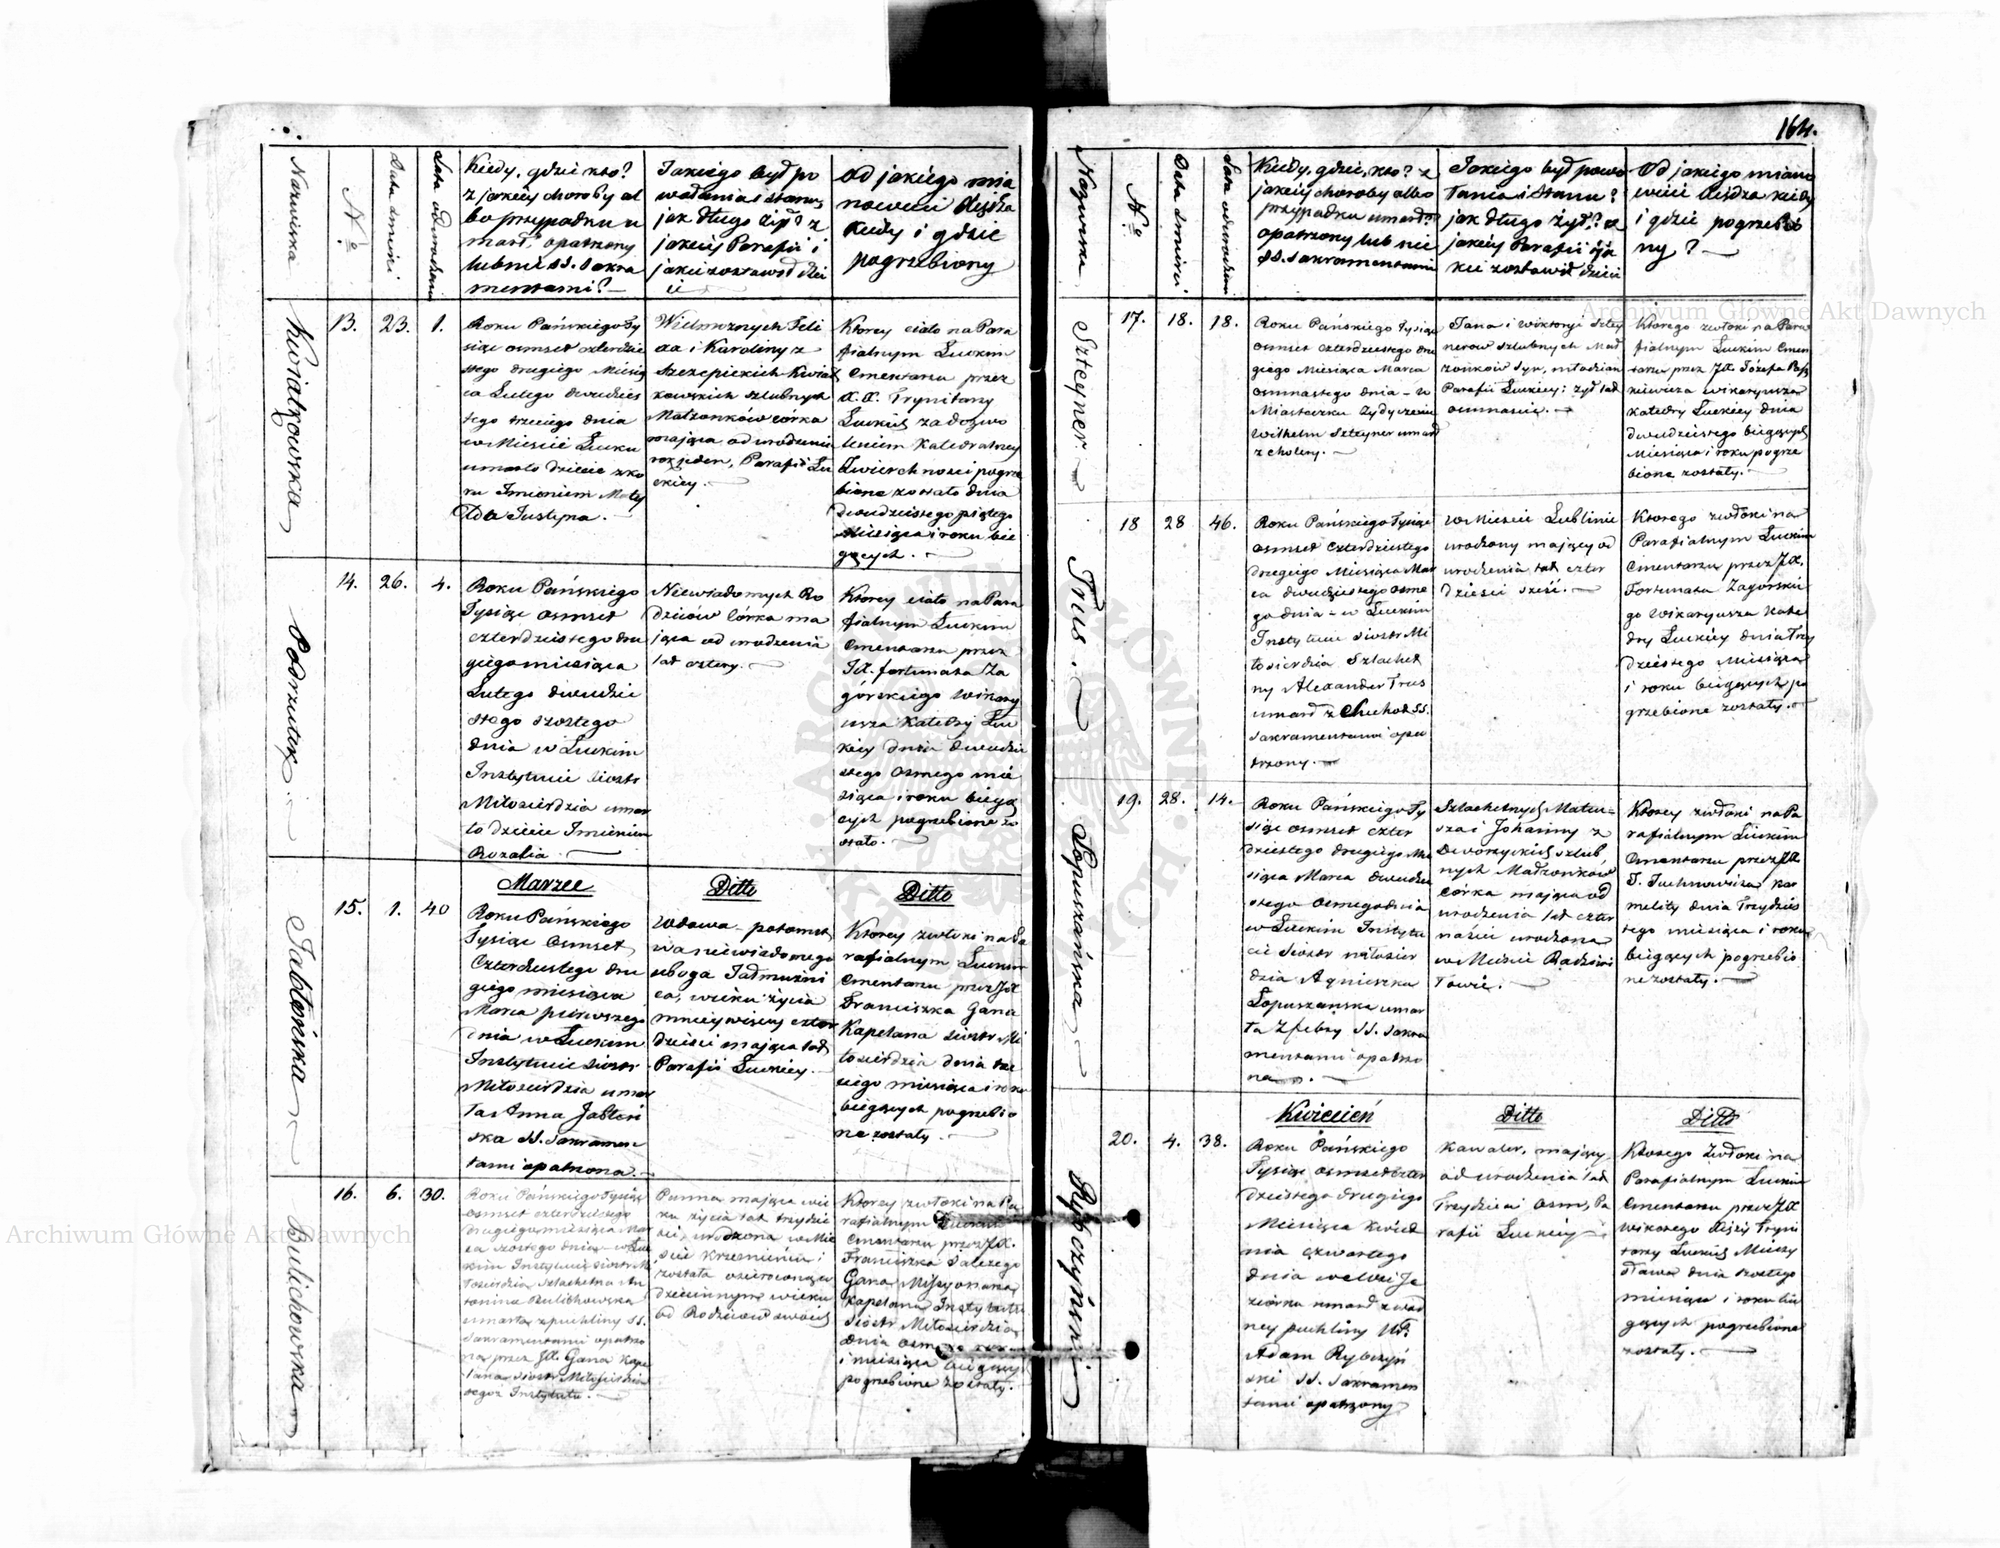 164.
Nazwiska
N°
Data śmierci
Lata od urodzenia
Kiedy, gdzie kto?
z jakiey choroby al
bo przypadku u
marł? opatrzony
lub nie SS. Sakra
mentami? —
Jakiego był po
wołania i stanu,
jak długo żył? z
jakiey Parafii i
jakie zostawił dzie
ci
Od jakiego mia
nowicie Xiędza
kiedy i gdzie
pogrzebiony
Kwiatkowska
13.
23.
1.
Roku Pańskiego Ty
siąc osmset czterdzie
stego drugiego Miesią
ca Lutego dwudzies
tego trzeciego dnia
w Mieście Łucku
umarło dziecie z ko
ru Imieniem Matyl
da Justyna. —
Wielmożnych Feli
xa i Karoliny z
Szczepickich Kwiat
kowskich szlubnych
Małżonków córka
mająca od urodzenia
rok jeden, Parafii Łu
ckiey. —
Ktorey ciało na Para
fialnym Łuckim
Cmentarzu przez
X.X. Trynitarzy
Łuckich za dozwo
leniem Katedralney
Zwierchności pogrze
bione zostało dnia
Dwudziestego piątego
Miesiąca i roku bie
gących. —
Podrzutek.
14.
26.
4.
Roku Pańskiego
Tysiąc osmset
czterdziestego dru
giego miesiąca
Lutego dwudzie
stego szostego
dnia w Łuckim
Instytucie Siostr
Miłosierdzia umar
ło dziecie Imieniem
Rozalia —
Niewiadomych Ro
dziców Córka ma
jąca od urodzenia
lat cztery. —
Ktorey ciało na Para
fialnym Łuckim
Cmentarzu przez
JX. Fortunata Za
górskiego Wikary
usza Katedry Łuc
kiey dnia dwudzie
stego osmego mie
siąca i roku bieżą
cych pogrzebione zo
stało. —
Marzec
Ditto
Ditto
Jabłońska
15.
1.
40
Roku Pańskiego
Tysiąc Osmset
Czterdziestego dru
giego miesiąca
Marca pierwszego
dnia w Łuckim
Instytucie Siostr
Miłosierdzia umar
ła Anna Jabłoń
ska SS. Sakramen
tami opatrzona. —
Wdowa — potomst
wa niewiadomego
uboga Jadmużni
ca, wieku życia
mniey więcey czter
dzieści mająca lat
Parafii Łuckiey. —
Ktorey zwłoki na Pa
rafialnym Łuckim
Cmentarzu przez JX
Franciszka Gana
Kapelana Siostr Mi
łosierdzia dnia trze
ciego miesiąca i roku
bieżących pogrzebio
ne zostały —
Bulichowska
16.
6.
30.
Roku Pańskiego Tysiąc
osmset czterdziestego
drugiego miesiąca Mar
ca szostego dnia — w Łuc
kim Instytucie Siostr Mi
łosierdzia Szlachetna An
tonina Bulichowska
umarła z puchliny SS.
Sakramentami opatrzo
na przez JX. Gana Kape
lana Siostr Miłosierdzia
tegoż Instytutu. —
Panna mająca wie
ku życia lat trzydzie
ści, urodzona w Mie
ście Krzemieńcu i
została osierocona w
dziecinnym wieku
od Rodziców swoich
Ktorey zwłoki na Pa
rafialnym Łuckim
Cmentarzu przez JX.
Franciszka Salezego
Gana Missyonarza
Kapelana Instytutu
Siostr Miłosierdzia
dnia osmego roku
i miesiąca bieżących
pogrzebione zostały.
Nazwiska
N°
Data śmierci
Lata od urodzenia
Kiedy, gdzie, kto? z
jakiey choroby albo
przypadku umarł?
opatrzony lub nie
SS. Sakramentami
Jakiego był powo
łania i Stanu?
jak długo żył? z
jakiey Parafii i ja
kie zostawił dzieci
Od jakiego miano
wicie Xiędza kiedy
i gdzie pogrzebio
ny? —
Szteyner
17.
18.
18.
Roku Pańskiego Tysiąc
osmset czterdziestego dru
giego Miesiąca Marca
osmnastego dnia — w
Miasteczku Żydyczynie
Wilhelm Szteyner umarł
z cholery. —
Jana i Wiktoryi Sztey
nerow szlubnych Mał
żonków syn, młodzian
Parafii Łuckiey: żył lat
osmnaście. —
Ktorego zwłoki na Para
fialnym Łuckim Cmen
tarzu przez JX. Józefa
Wikaryusza
Katedry Łuckiey dnia
dwudziestego bieżących
Miesiąca i roku pogrze
bione zostały. —
Trus.
18
28
46.
Roku Pańskiego Tysiąc
osmset czterdziestego
drugiego Miesiąca Mar
ca dwudziestego osme
go dnia — w Łuckim
Instytucie Siostr Mi
łosierdzia Szlachet
ny Alexander Trus
umarł z Suchot SS.
Sakramentami opa
trzony. —
w Mieście Lublinie
urodzony mający od
urodzenia lat czter
dzieści sześć. —
Ktorego zwłoki na
Parafialnym Łuckim
Cmentarzu przez JX.
Fortunata Zagorskie
go Wikaryusza Kate
dry Łuckiey dnia Trzy
dziestego Miesiąca
i roku bieżących po
grzebione zostały. —
Łopuszańska
19.
28.
14.
Roku Pańskiego Ty
siąc osmset czter
dziestego drugiego Mie
siąca Marca dwudzie
stego osmego dnia
w Łuckim Instytu
cie Siostr miłosier
dzia Agnieszka
Łopuszańska umar
ła z febry SS. Sakra
mentami opatrzo
na. —
Szlachetnych Mateu
sza i Johanny z
Dworzyckich szlub,
nych Małżonków
córka mająca od
urodzenia lat czter
naście urodzona
w Mieście Radziwi
łowie. —
Ktorey zwłoki na Pa
rafialnym Łuckim
Cmentarzu przez JX
J. Juchnowicza Kar
melity dnia Trzydzies
tego miesiąca i roku
bieżących pogrzebio
ne zostały. —
Kwiecień
Ditto
Ditto
Rybczyński
20.
4.
38.
Roku Pańskiego
Tysiąc osmset czter
dziestego drugiego
Miesiąca Kwiet
nia czwartego
dnia we wsi Je
ziorku umarł z wod
ney puchliny Ur.
Adam Rybczyń
ski SS. Sakramen
tami opatrzony
Kawaler, mający
od urodzenia lat
Trzydzieści osm, Pa
rafii Łuckiey —
Ktorego zwłoki na
Parafialnym Łuckim
Cmentarzu przez JX
Wikarego Xięży Tryni
tarzy Łuckich Mieczy
sława dnia szostego
miesiąca i roku bie
żących pogrzebione
zostały. —
Archiwum Główne Akt Dawnych
Archiwum Główne Akt Dawnych